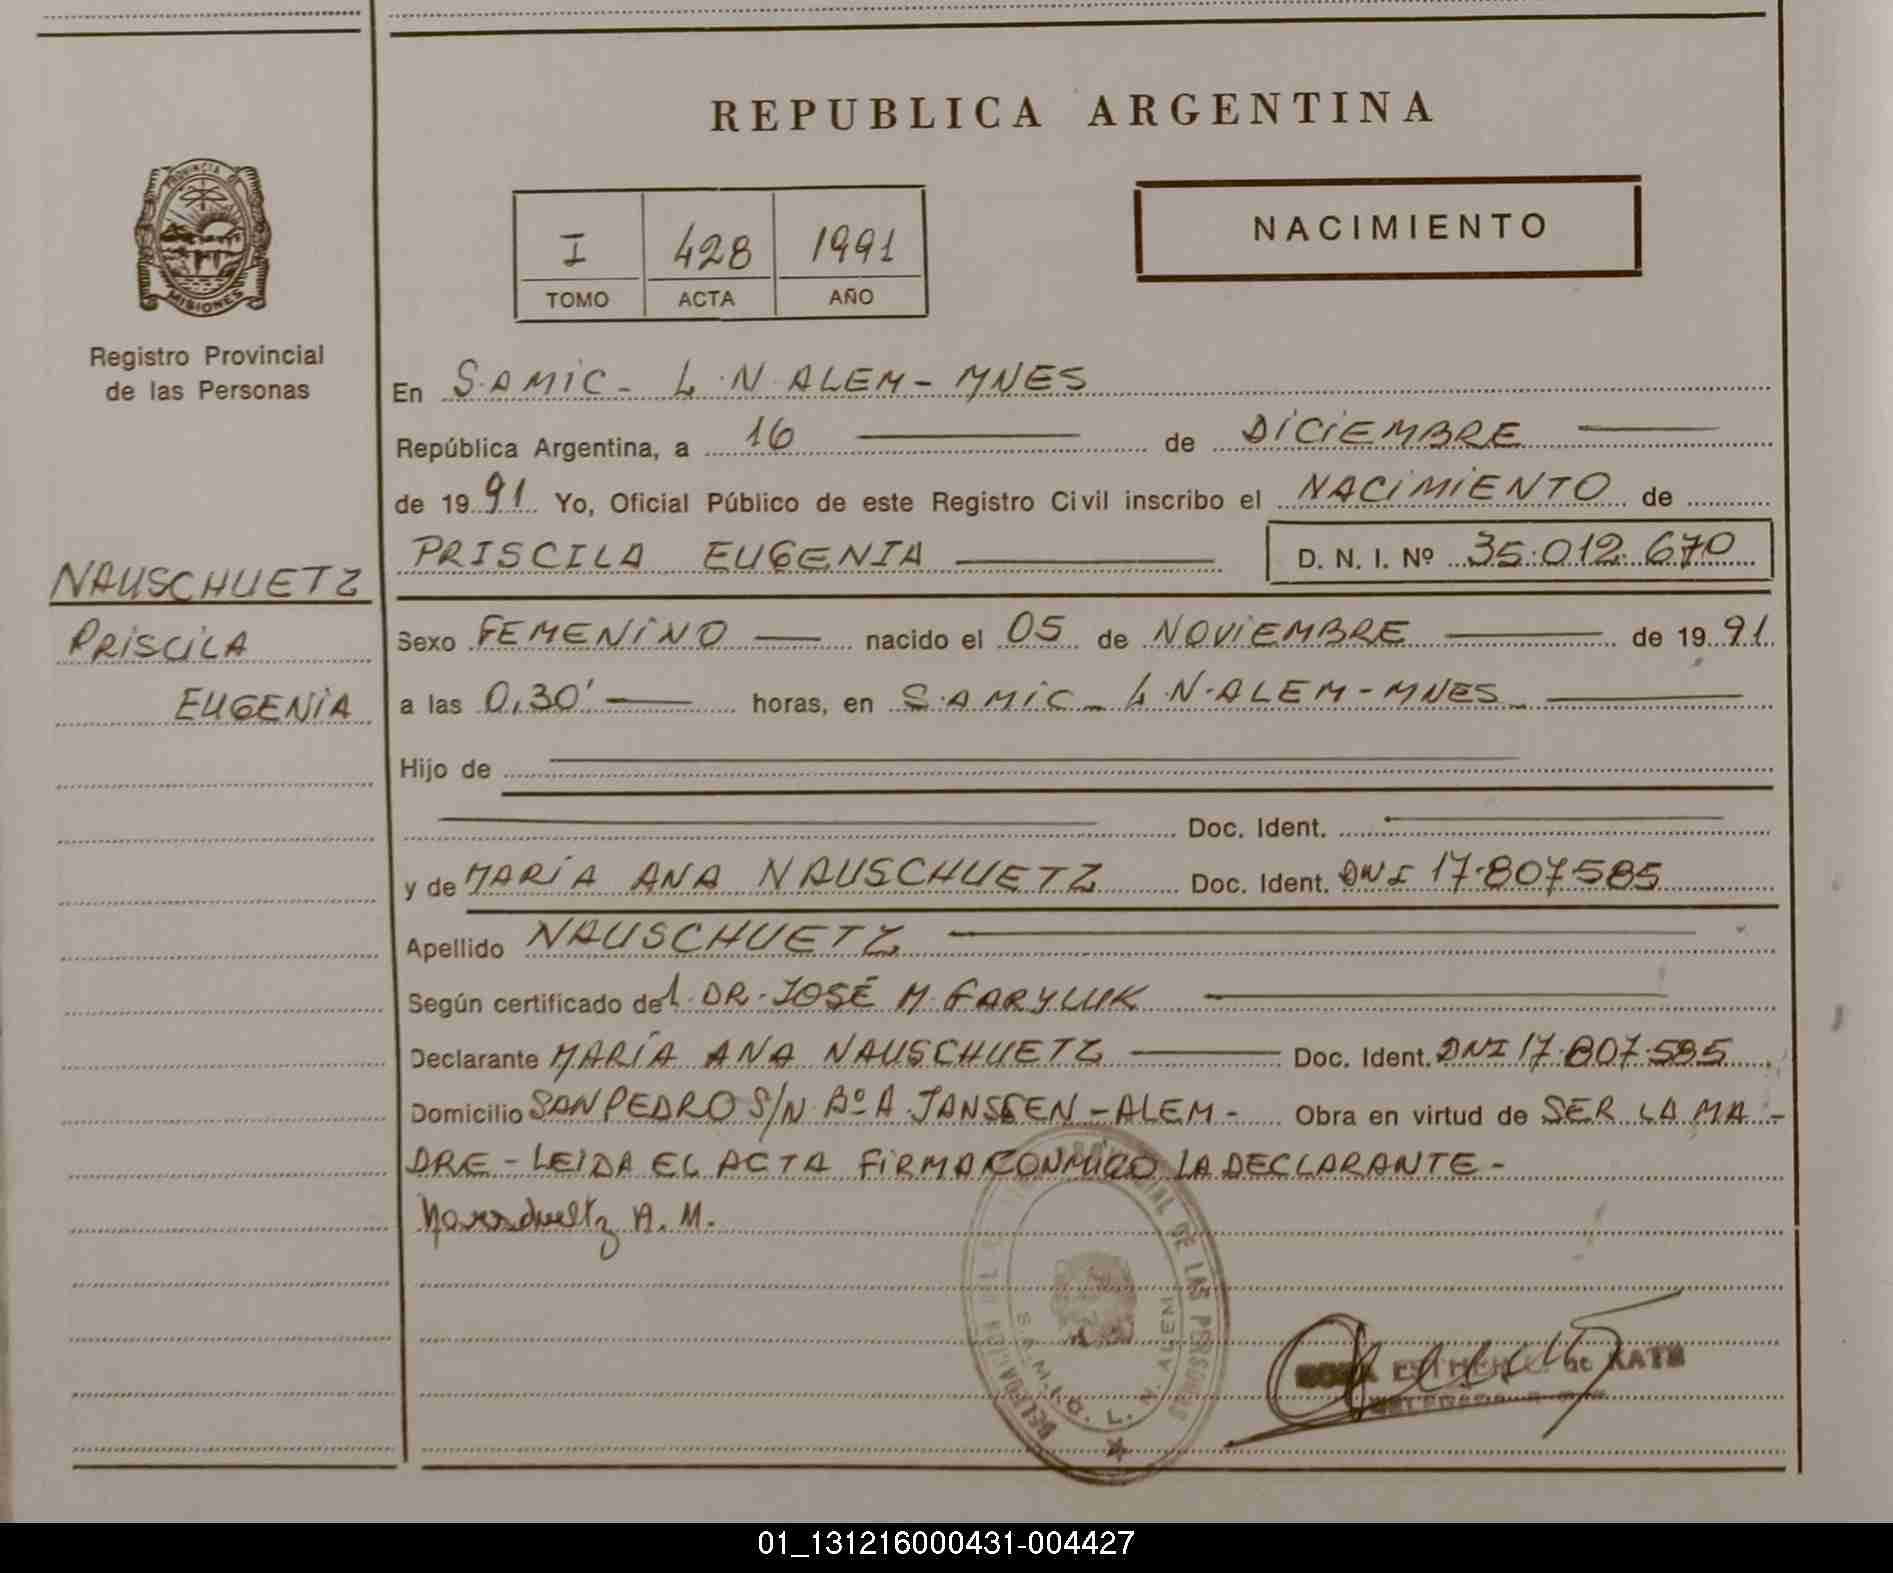 REPUBLICA ARGENTINA
PROVINCIA DE
MISIONES
Registro Provincial
de las Personas
I 428 1991
TOMO ACTA AÑO
NACIMIENTO
En S.AMIC- L.N.ALEM-MNES
República Argentina, a 16 de DICIEMBRE
de 1991 Yo, Oficial Público de este Registro Civil inscribo el NACIMIENTO de
PRISCILA EUGENIA D. N. I. Nº 35.012.670
NAUSCHUETZ
PRISCILA
EUGENIA
Sexo FEMENINO nacido el 05 de NOVIEMBRE de 1991
a las 0,30' horas, en S.AMIC- L.N.ALEM-MNES-
Hijo de
Doc. Ident.
y de MARÍA ANA NAUSCHUETZ Doc. Ident. DNI 17.807.585
Apellido NAUSCHUETZ
Según certificado del DR. JOSÉ M. FARYLUK
Declarante MARÍA ANA NAUSCHUETZ Doc. Ident. DNI 17.807.585
Domicilio SAN PEDRO S/N Bº A. JANSSEN-ALEM- Obra en virtud de SER LA MA-
DRE-LEIDA EL ACTA FIRMA CONMIGO LA DECLARANTE-
A. M.
DE LAS PERSONAS
L. N. ALEM
01_131216000431-004427